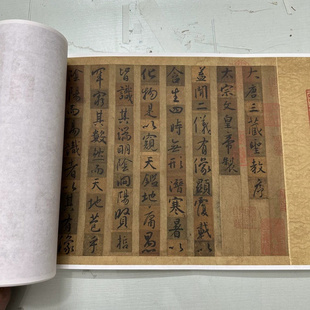 大唐三藏聖教序
太宗文皇帝製
蓋聞二儀有像顯覆載以
含生四時無形潛寒暑以
化物是以窺天鑑地庸愚
皆識其端明陰洞陽賢哲
罕窮其數然而天地苞乎
陰陽而易識者以其有象